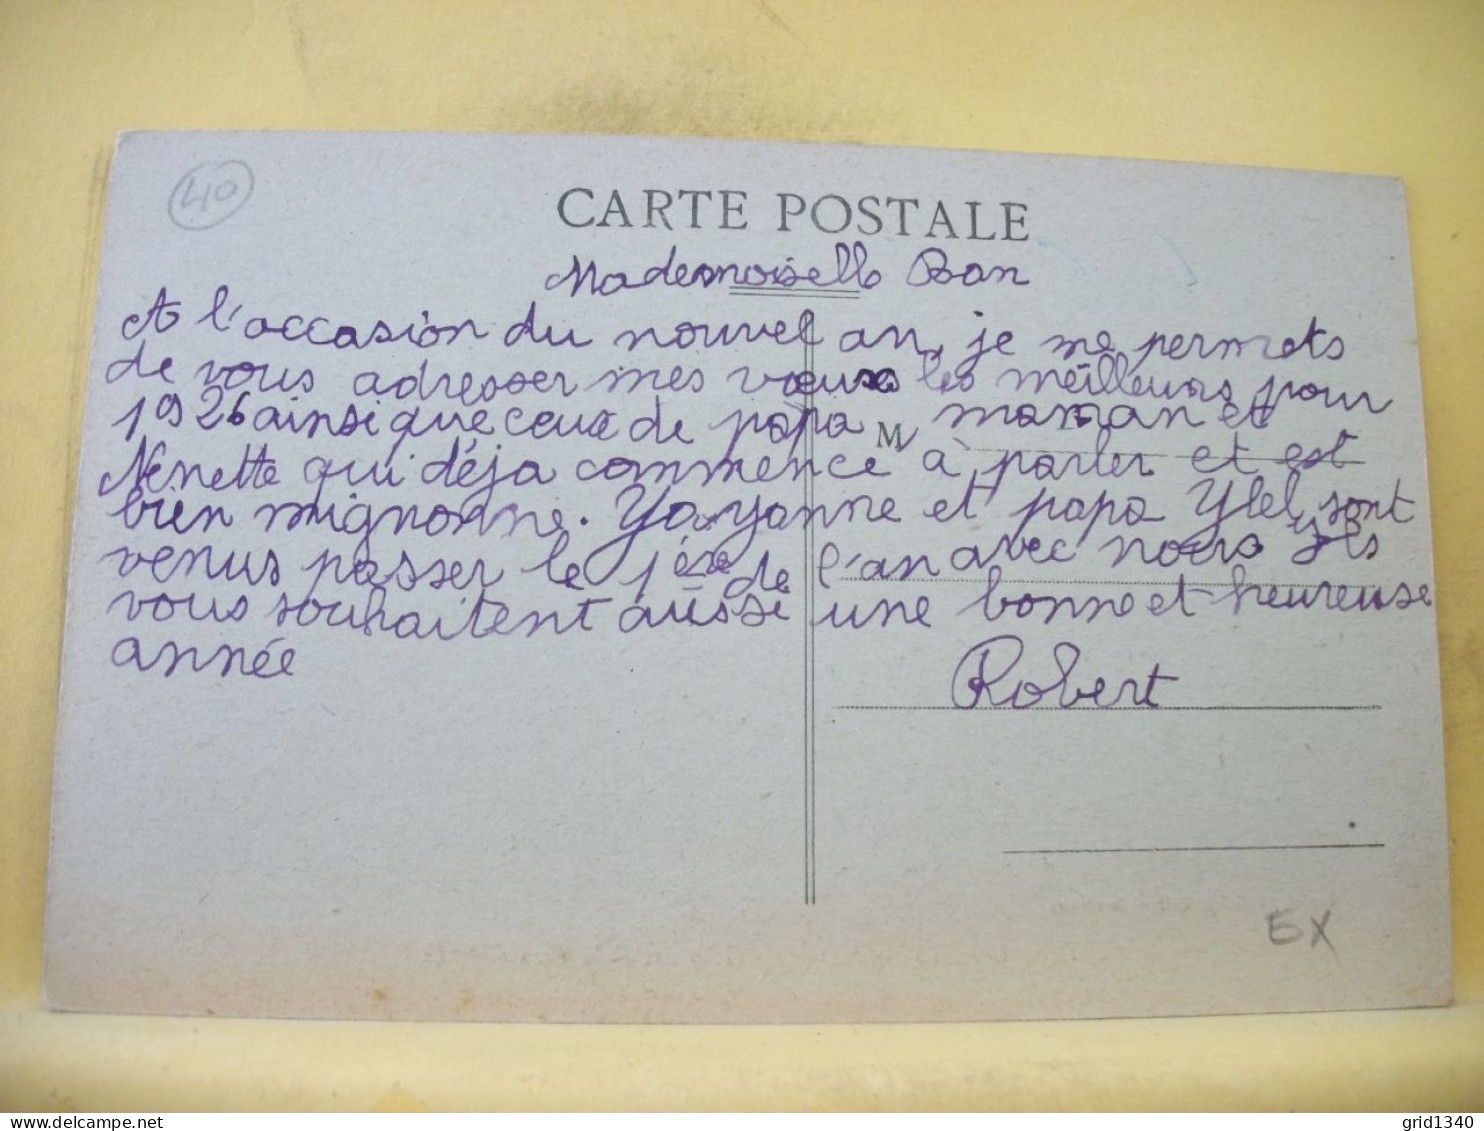 40
CARTE POSTALE
Mademoiselle Ban
A l'accasion du nouvel an, je me permets
de vous adresser mes vœux les meilleurs pour
1926 ainsi que ceux de papa, maman et
M
Nenette qui déja commence à parler et est
bien mignonne. Yayanne et papa sont
venus passer le 1ère de l'an avec nous ils
vous souhaitent aussi une bonne et heureuse
année
Robert
EX
grid1340